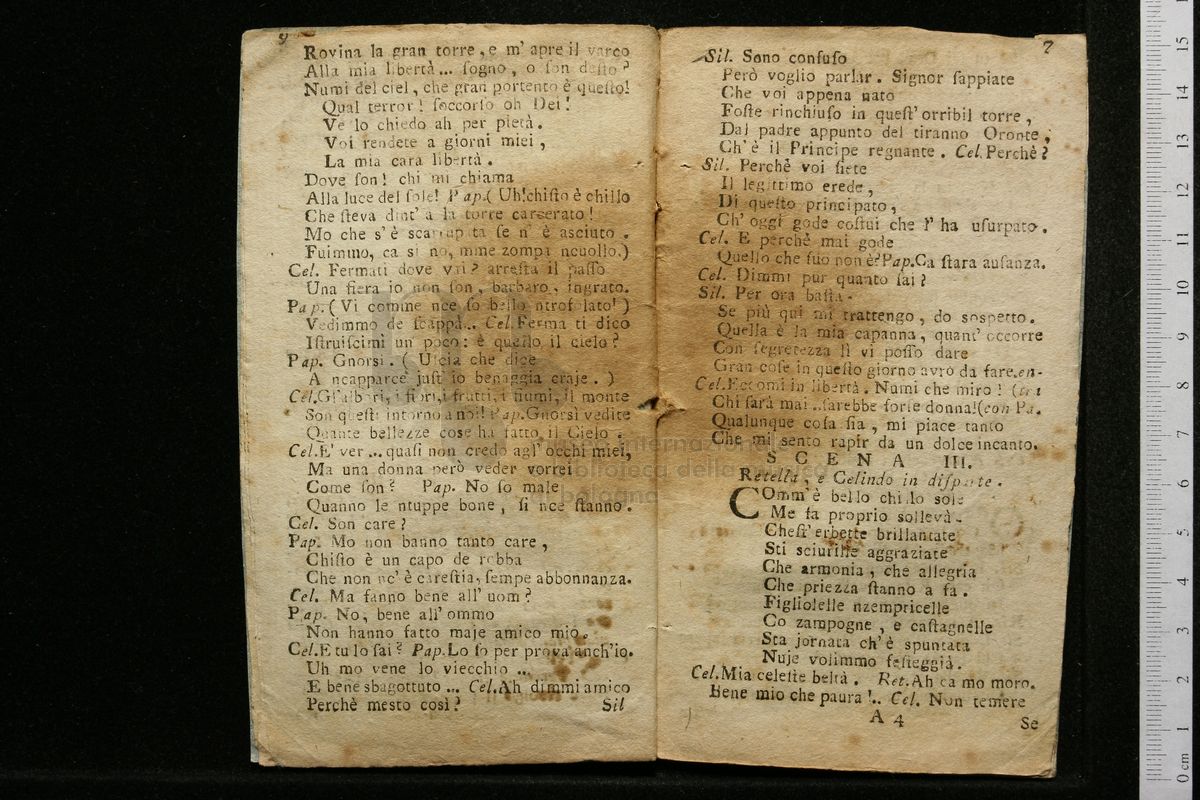 9
Rovina la gran torre, e m' apre il varco
Alla mia libertà... sogno, o son desto?
Numi del ciel, che gran portento è questo!
Qual terror! soccorso oh Dei!
Ve lo chiedo ah per pietà.
Voi rendete a giorni miei,
La mia cara libertà.
Dove son! chi mi chiama
Alla luce del sole! Pap.( Uh! chisto è chillo
Che steva dint' a la torre carcerato!
Mo che s' è scarrupata se n' è asciuto.
Fuimmo, ca si no, mme zompa ncuollo.)
Cel. Fermati dove vai? arresta il passo
Una fiera io non son, barbaro, ingrato.
Pap. ( Vi comme nce so bello ntrofolato!)
Vedimmo de scappà... Cel. Ferma ti dico
Istruiscimi un poco: è quello il cielo?
Pap. Gnorsì. ( Uscia che dice
A ncapparce just' io benaggia craje. )
Cel. Gl' alberi, i fiori, i frutti, i fiumi, il monte
Son questi intorno a noi! Pap. Gnorsì vedite
Quante bellezze cose ha fatto il Cielo.
Cel. E' ver... quasi non credo agl' occhi miei,
Ma una donna però veder vorrei
Come son? Pap. No so male
Quanno le ntuppe bone, si nce stanno.
Cel. Son care?
Pap. Mo non banno tanto care,
Chisto è un capo de robba
Che non nc' è carestia, sempe abbonnanza.
Cel. Ma fanno bene all' uom?
Pap. No, bene all' ommo
Non hanno fatto maje amico mio.
Cel. E tu lo sai? Pap. Lo so per prova anch'io.
Uh mo vene lo viecchio...
E bene sbagottuto... Cel. Ah dimmi amico
Perchè mesto così?
Sil
7
Sil. Sono confuso
Però voglio parlar. Signor sappiate
Che voi appena nato
Foste rinchiuso in quest' orribil torre,
Dal padre appunto del tiranno Oronte,
Ch' è il Principe regnante. Cel. Perchè?
Sil. Perchè voi siete
Il legittimo erede,
Di questo principato,
Ch' oggi gode costui che l' ha usurpato.
Cel. E perchè mai gode
Quello che suo non è? Pap. Ca stara ausanza.
Cel. Dimmi pur quanto sai?
Sil. Per ora basta.
Se più qui mi trattengo, do sospetto.
Quella è la mia capanna, quant' occorre
Con segretezza lì vi posso dare
Gran cose in questo giorno avrò da fare. en-
Cel. Eccomi in libertà. Numi che miro! (tra
Chi sarà mai.. sarebbe forse donna! (con Pa.
Qualunque cosa sia, mi piace tanto
Che mi sento rapir da un dolce incanto.
SCENA III.
Retella, e Celindo in disparte.
COmm' è bello chillo sole
Me fa proprio sollevà.
Chest' erbette brillantate
Sti sciurille aggraziate
Che armonia, che allegria
Che priezza stanno a fa.
Figliolelle nzempricelle
Co zampogne, e castagnelle
Sta jornata ch' è spuntata
Nuje volimmo festeggià.
Cel. Mia celeste beltà. Ret. Ah ca mo moro.
Bene mio che paura!.. Cel. Non temere
A 4
Se
museo internazionale
e biblioteca della musica
bologna
0 cm 1 2 3 4 5 6 7 8 9 10 11 12 13 14 15